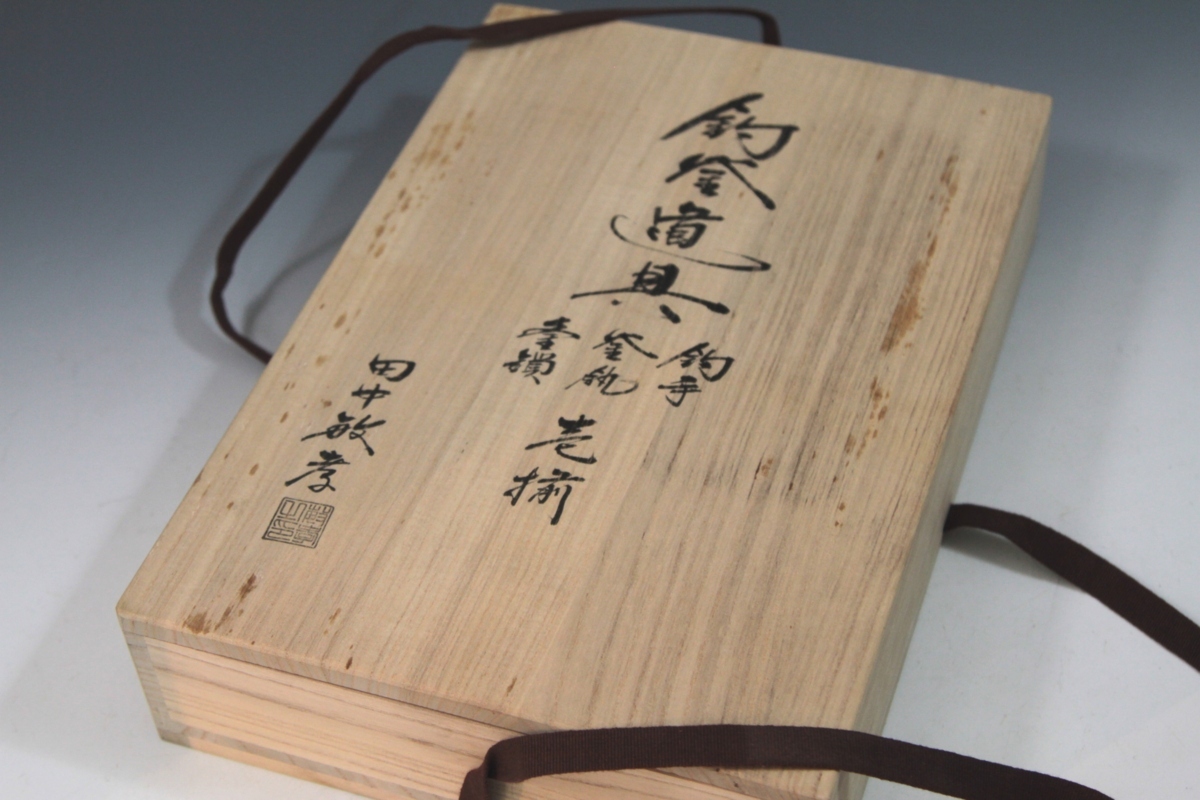 釣釜道具
釣手
釜釻
臺鎖
壱揃
田中敏孝